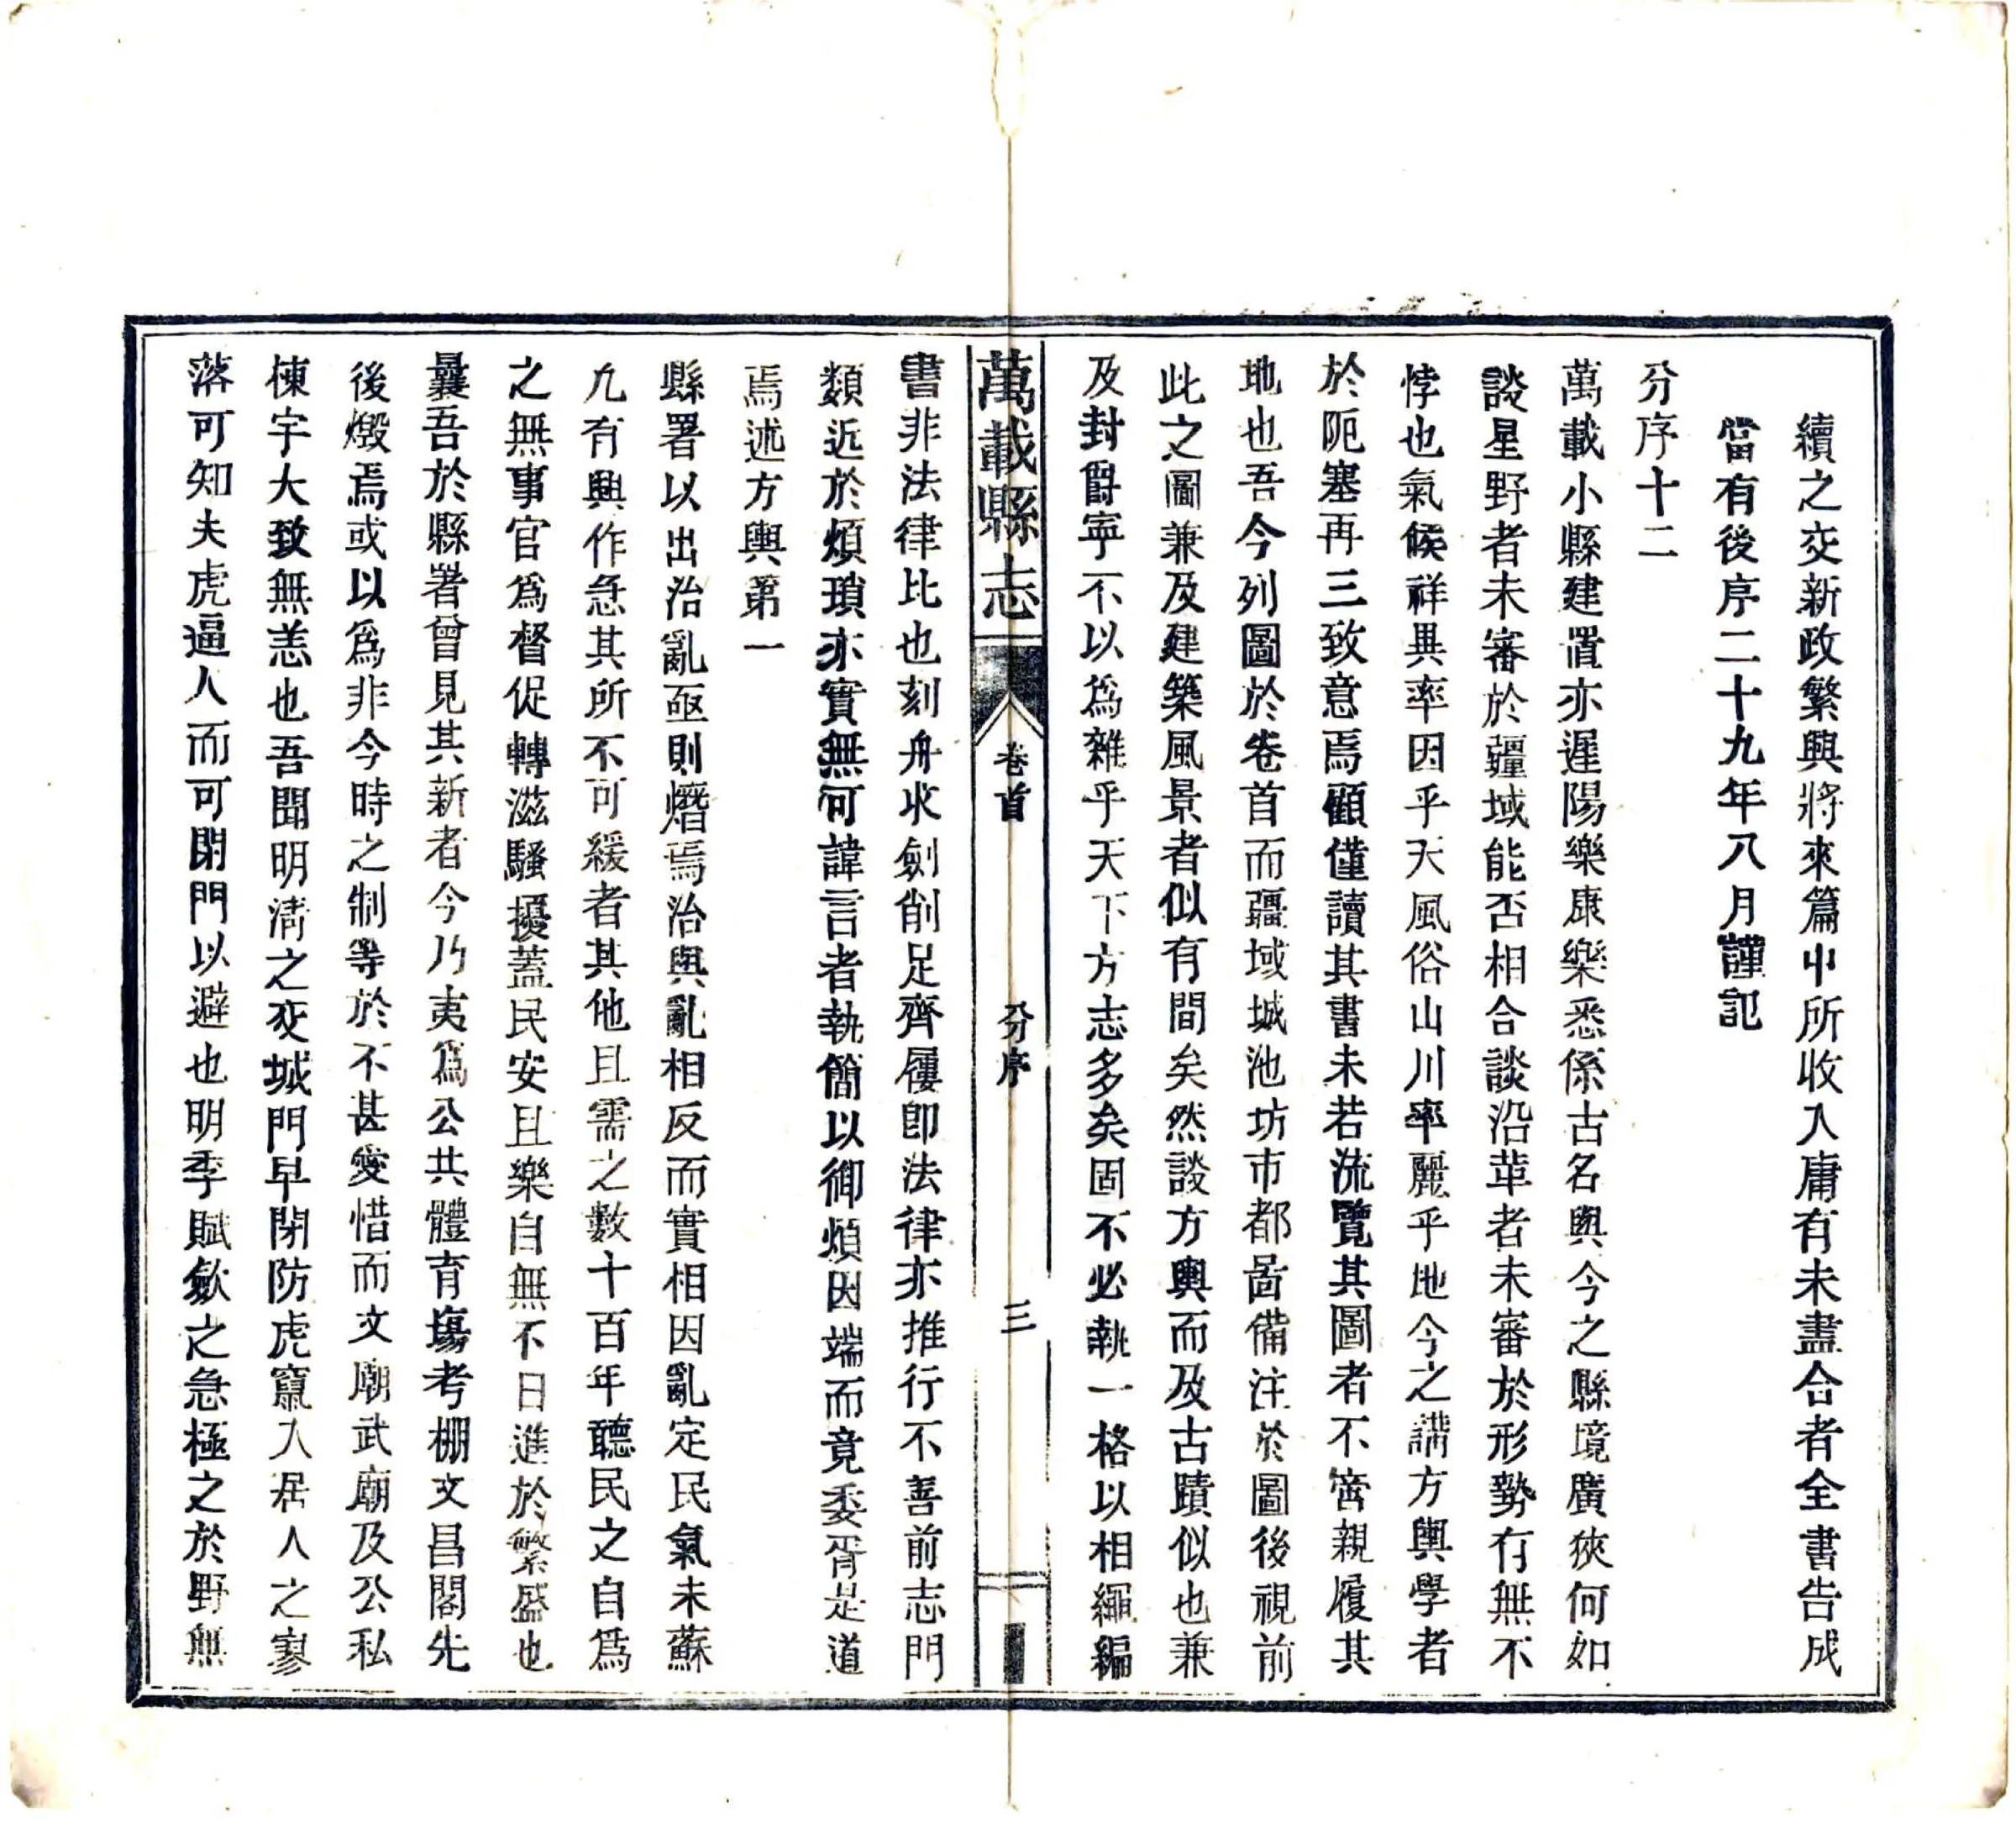 續之交新政繁興將來篇中所收入庸有未盡合者全書告成
當有後序二十九年八月謹記
分序十二
萬載小縣建置亦遲陽樂康樂悉係古名輿今之縣境廣狹何如
談星野者未審於疆域能否相合談沿革者未審於形勢有無不
悖也氣候祥異率因乎天風俗山川率麗乎地今之講方輿學者
於阨塞再三致意焉顧僅讀其書未若流覽其圖者不啻親履其
地也吾今列圖於卷首而疆域城池坊市都啚備注於圖後視前
此之圖兼及建築風景者似有間矣然談方輿而及古蹟似也兼
及封爵寧不以為雜乎天下方志多矣固不必執一格以相繩編
萬載縣志
卷首
分序
三
書非法律比也刻舟求劍削足齊屨卽法律亦推行不善前志門
類近於煩瑣亦實無何諱言者執簡以御煩因端而竟委胥是道
焉述方輿第一
縣署以出治亂亟則熸焉治與亂相反而實相因亂定民氣未蘇
凡有興作急其所不可緩者其他且需之數十百年聽民之自為
之無事官為督促轉滋騷擾蓋民安且樂自無不日進於繁盛也
曩吾於縣署曾見其新者今乃夷為公共體育場考棚文昌閣先
後燬焉或以為非今時之制等於不甚愛惜而文廟武廟及公私
棟宇大致無恙也吾聞明清之交城門早閉防虎竄入居人之寥
落可知夫虎逼人而可閉門以避也明季賦斂之急極之於野無